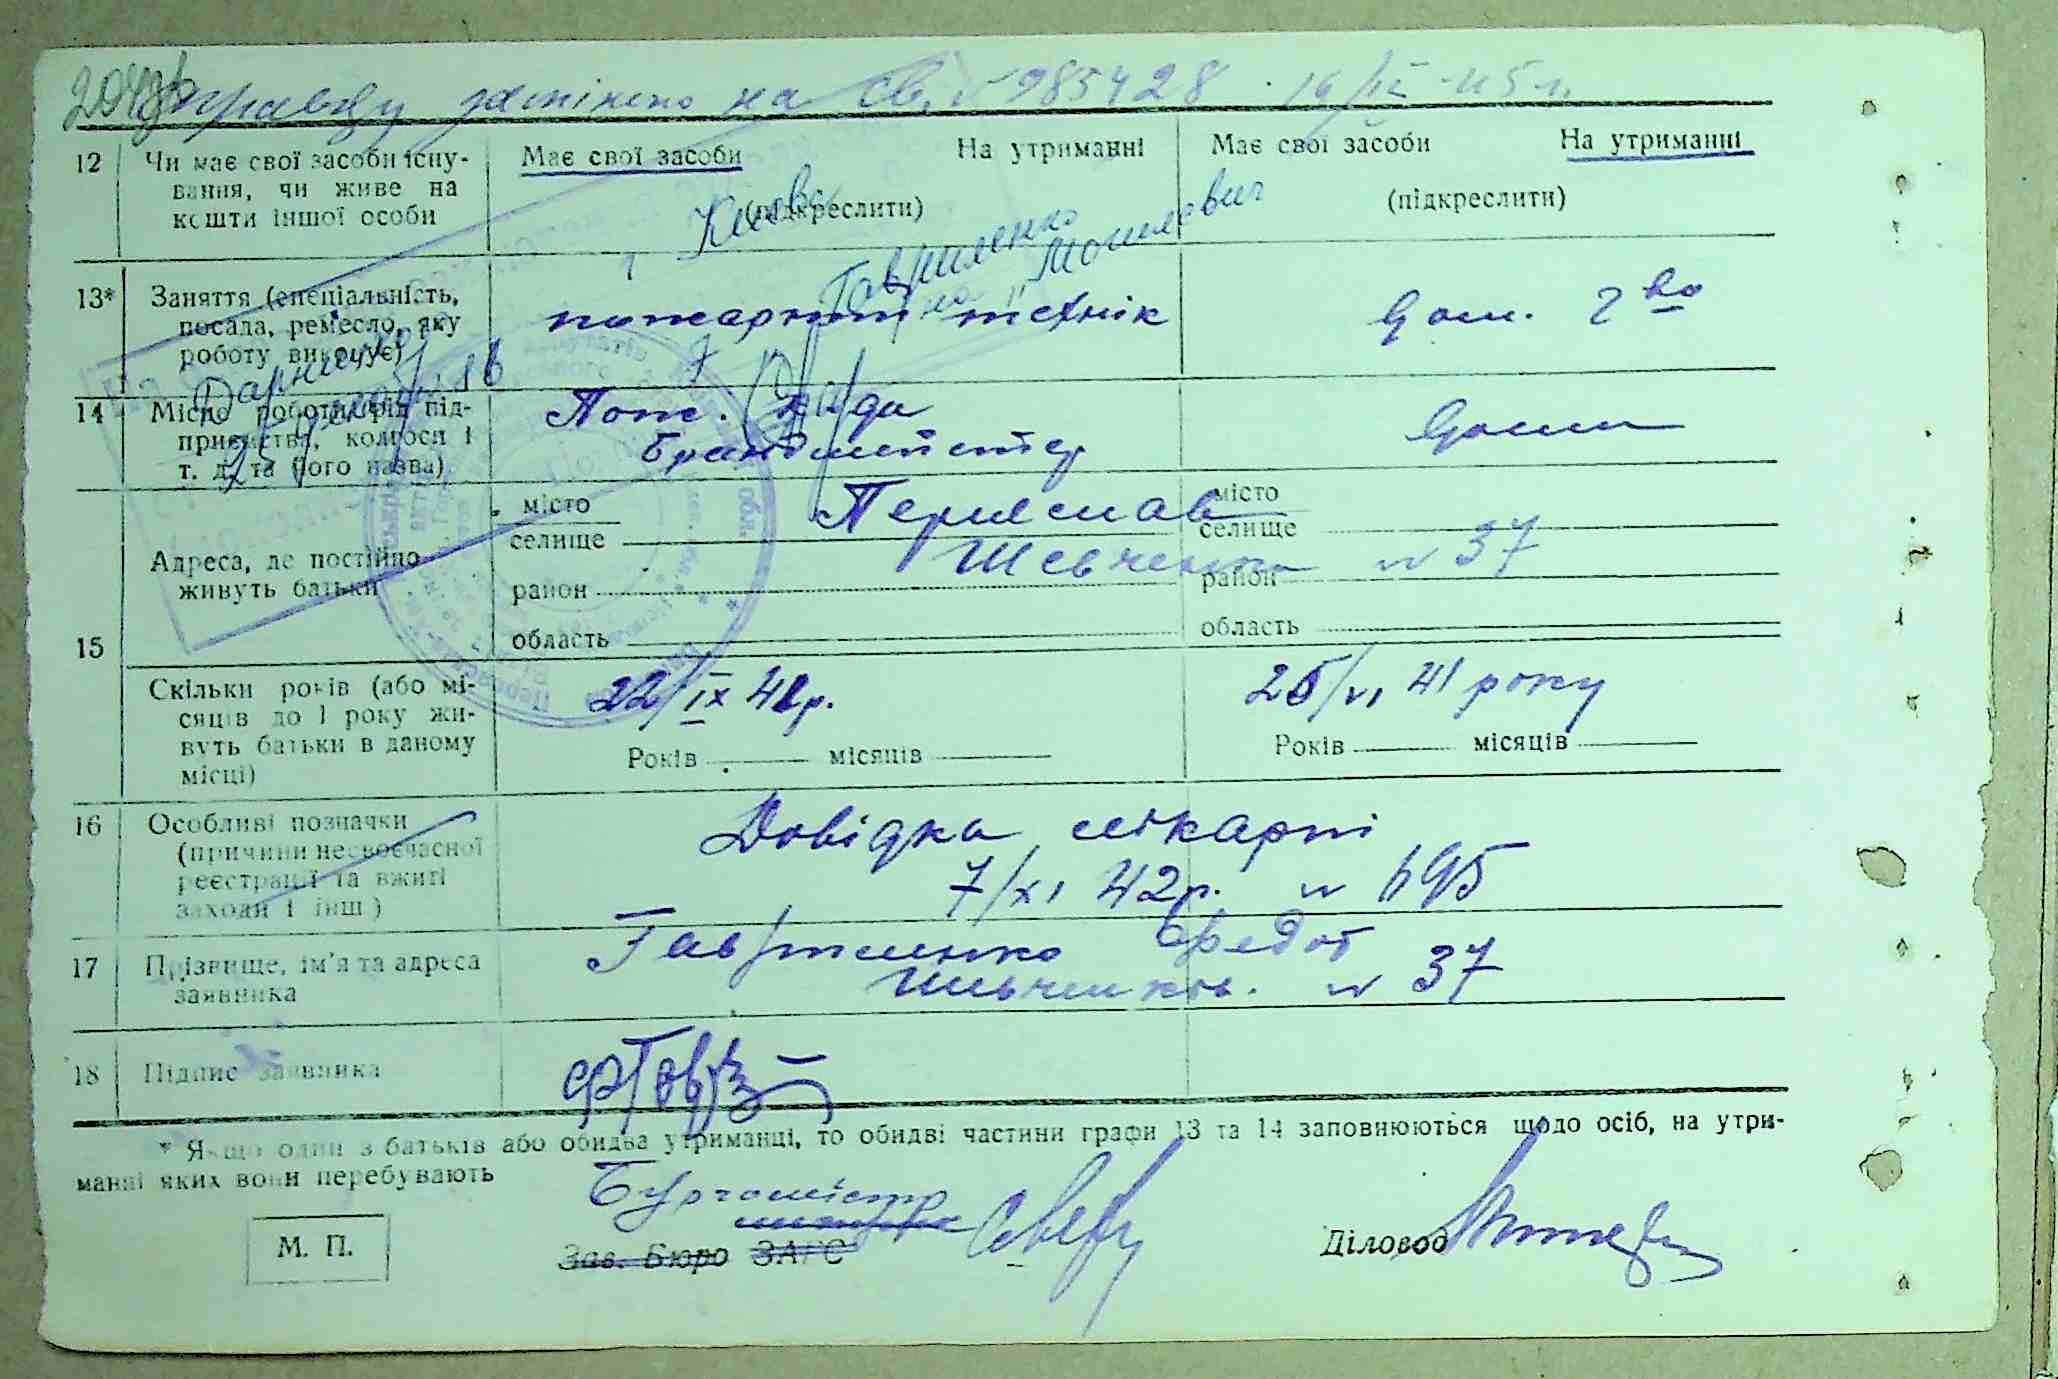 замінено на Св. № 985428 16/IX-45 р.
12 Чи має свої засоби існу-
вання, чи живе на
кошти іншої особи
Має свої засоби На утриманні
(підкреслити)
Має свої засоби На утриманні
(підкреслити)
Гавриленко
на "Могилевич
13* Заняття (спеціальність,
посада, ремесло, яку
роботу виконує)
пожарний технік
Дом. г-во
14 Місце роботи крім під-
приємства, колгосп і
т. д. та його назва)
Пож.
брандмейстер
Дома
15 Адреса, де постійно
живуть батьки
місто
селище
район
область
Переяслав
Шевченка № 37
місто
селище
район
область
Скільки років (або мі-
сяців до 1 року жи-
вуть батьки в даному
місці)
22/IX 41 р.
Років місяців
25/VI 41 року
Років місяців
16 Особливі позначки
(причини несвоєчасної
реєстрації та вжиті
заходи і інш)
Довідка лікарні
7/XI 42 р. № 695
17 Прізвище, ім'я та адреса
заявника
Гавриленко Федот
Шевченков. № 37
18 Підпис заявника
* Якщо один з батьків або обидва утриманці, то обидві частини графи 13 та 14 заповнюються щодо осіб, на утри-
манні яких вони перебувають
Бургомістр
М. П.
Зав. Бюро ЗАГС
Діловод